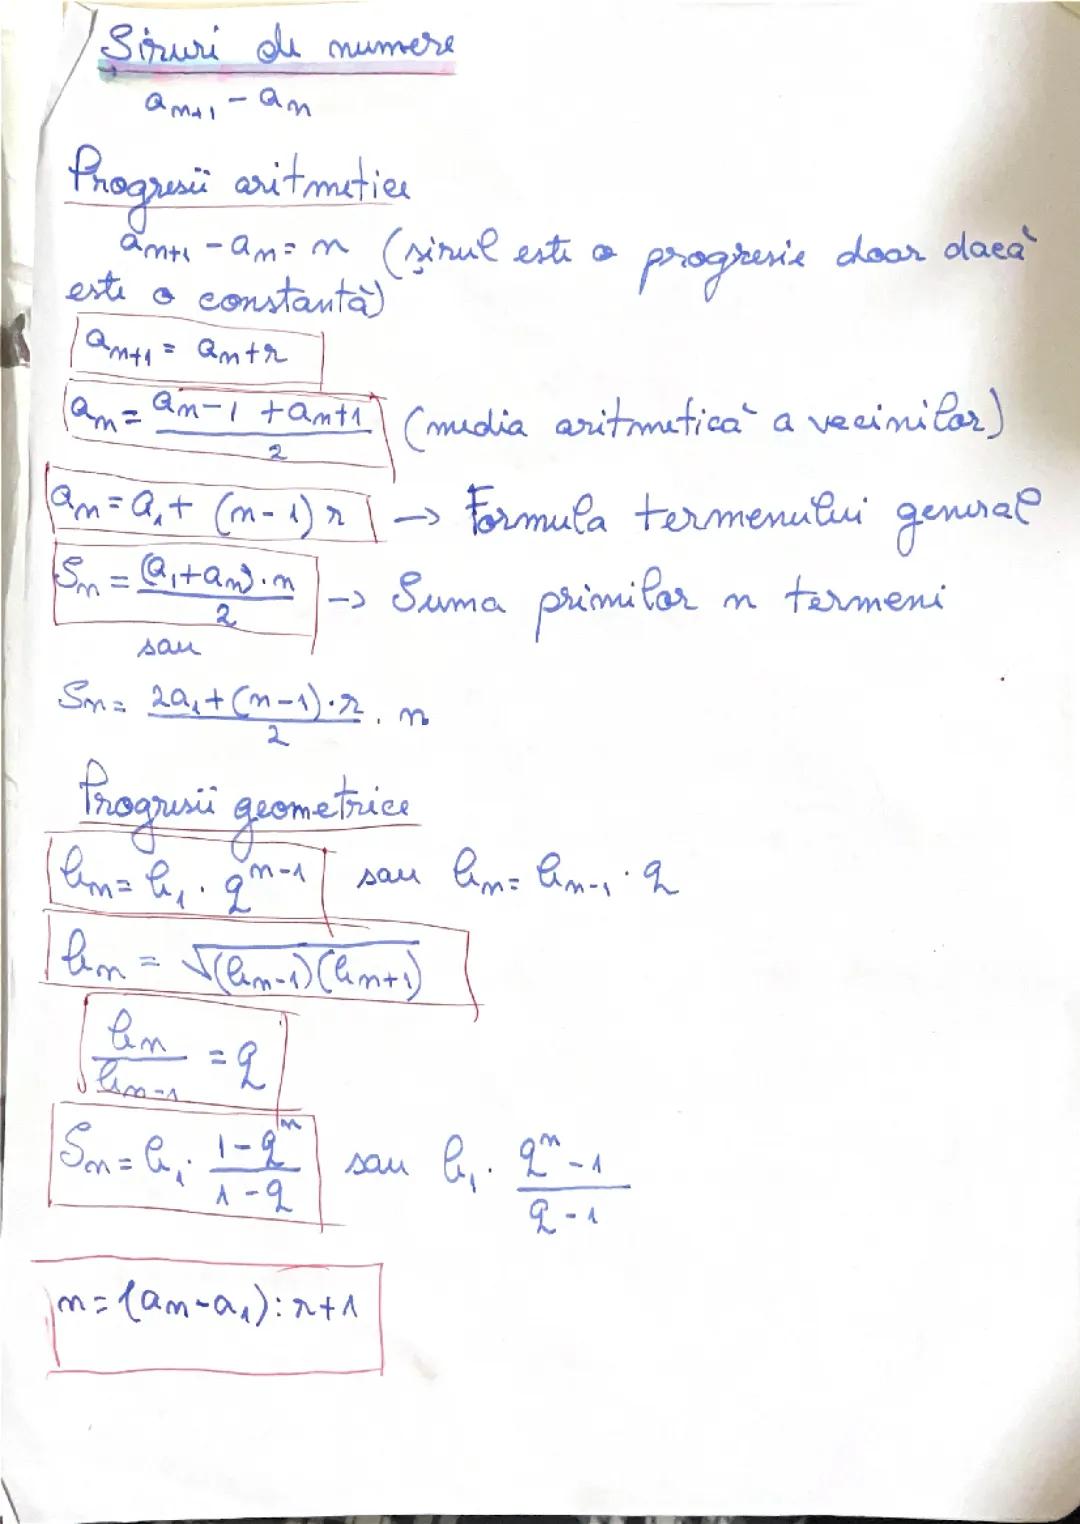 Șiruri de numere
aₙ₊₁ - aₙ
Progresii aritmetice
aₙ₊₁ - aₙ = n (șirul este o progresie doar dacă
este o constantă)
aₙ₊₁ = aₙ + r
aₙ = (aₙ₋₁ + aₙ₊₁)/2 (media aritmetică a vecinilor)
aₙ = a₁ + (n-1) r → Formula termenului general
Sₙ = (a₁+aₙ)·n/2 → Suma primilor n termeni
sau
Sₙ = (2a₁+(n-1)·r)/2 · n
Progresii geometrice
bₙ = b₁ · qⁿ⁻¹ sau bₙ = bₙ₋₁ · q
bₙ = √(bₙ₋₁)(bₙ₊₁)
bₙ/bₙ₋₁ = q
Sₙ = b₁ · (1-qⁿ)/(1-q) sau b₁ · (qⁿ-1)/(q-1)
n = (aₙ-a₁):r+1